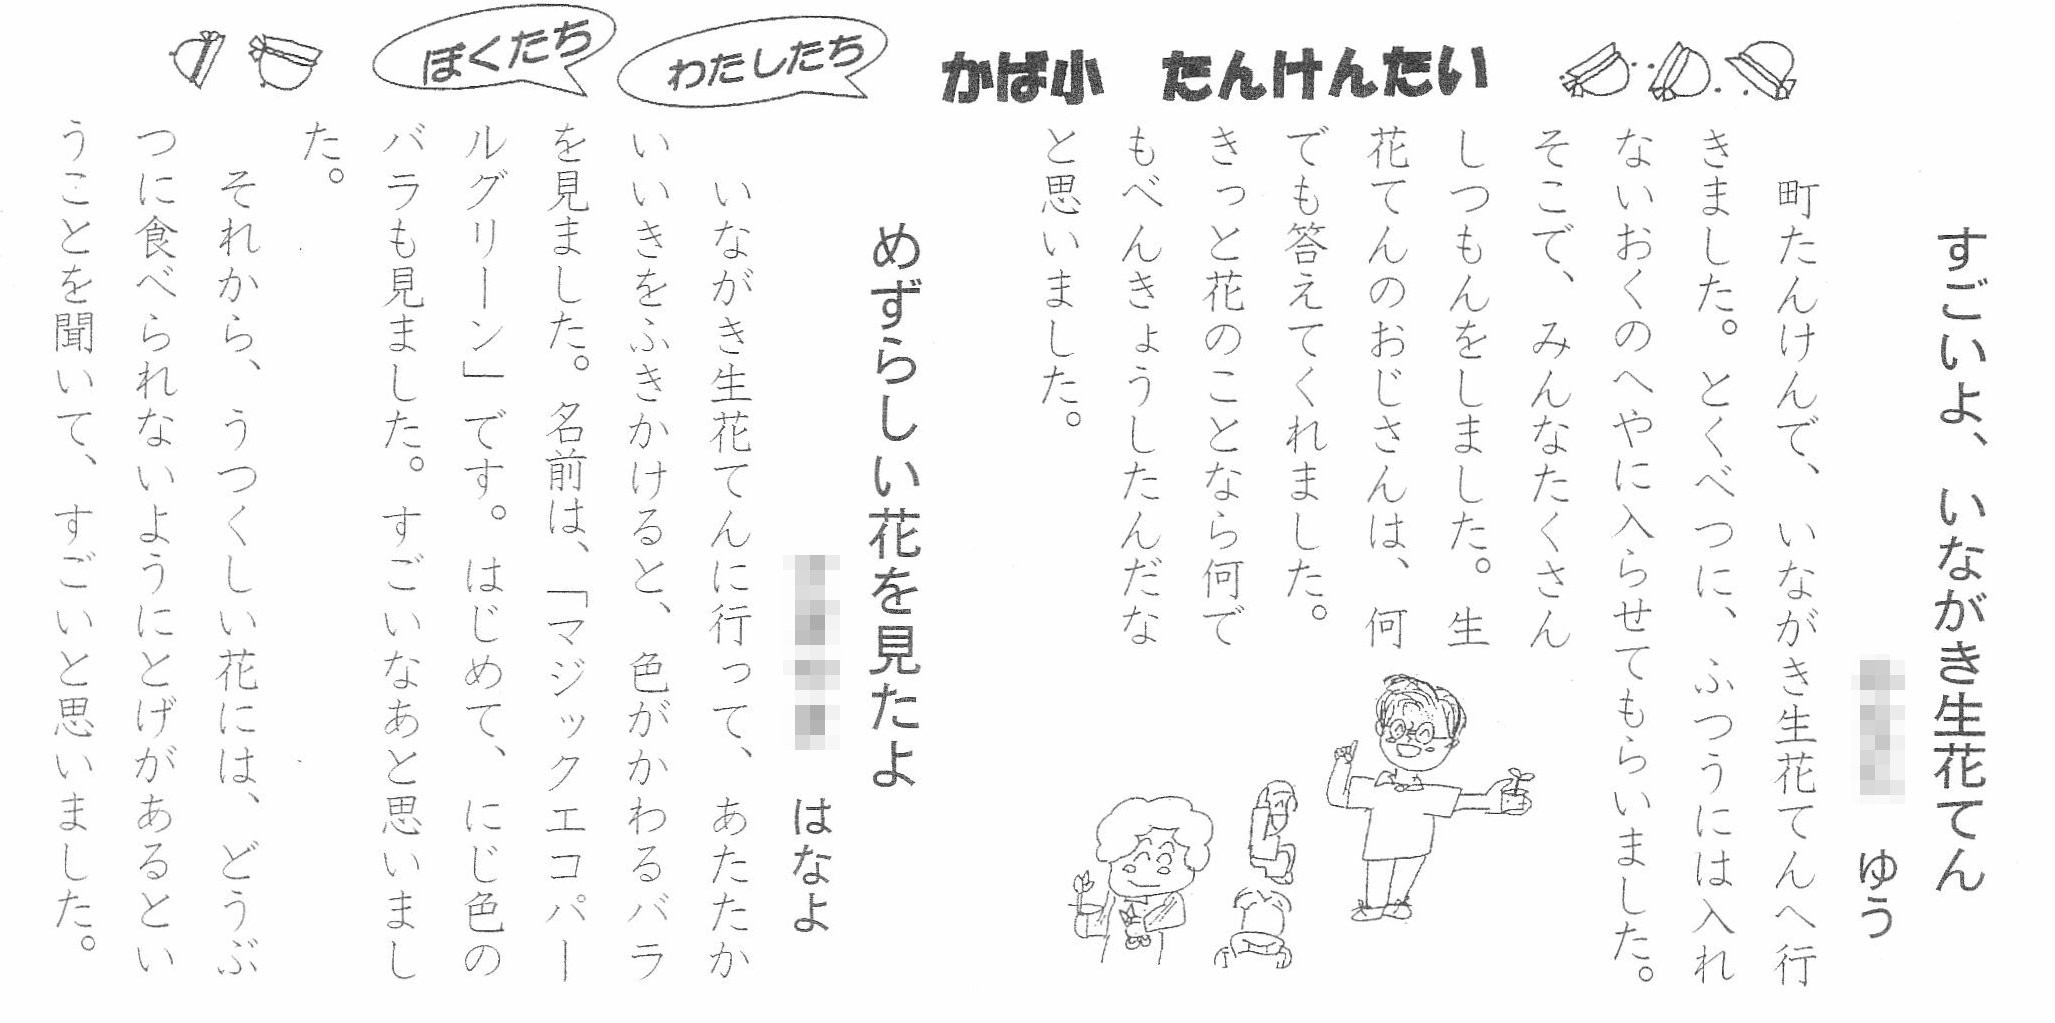 ぼくたち
わたしたち
かば小 たんけんたい
すごいよ、いながき生花てん
ゆう
町たんけんで、いながき生花てんへ行
きました。とくべつに、ふつうには入れ
ないおくのへやに入らせてもらいました。
そこで、みんなたくさん
しつもんをしました。生
花てんのおじさんは、何
でも答えてくれました。
きっと花のことなら何で
もべんきょうしたんだな
と思いました。
めずらしい花を見たよ
はなよ
いながき生花てんに行って、あたたか
いいきをふきかけると、色がかわるバラ
を見ました。名前は、「マジックエコパー
ルグリーン」です。はじめて、にじ色の
バラも見ました。すごいなあと思いまし
た。
それから、うつくしい花には、どうぶ
つに食べられないようにとげがあるとい
うことを聞いて、すごいと思いました。